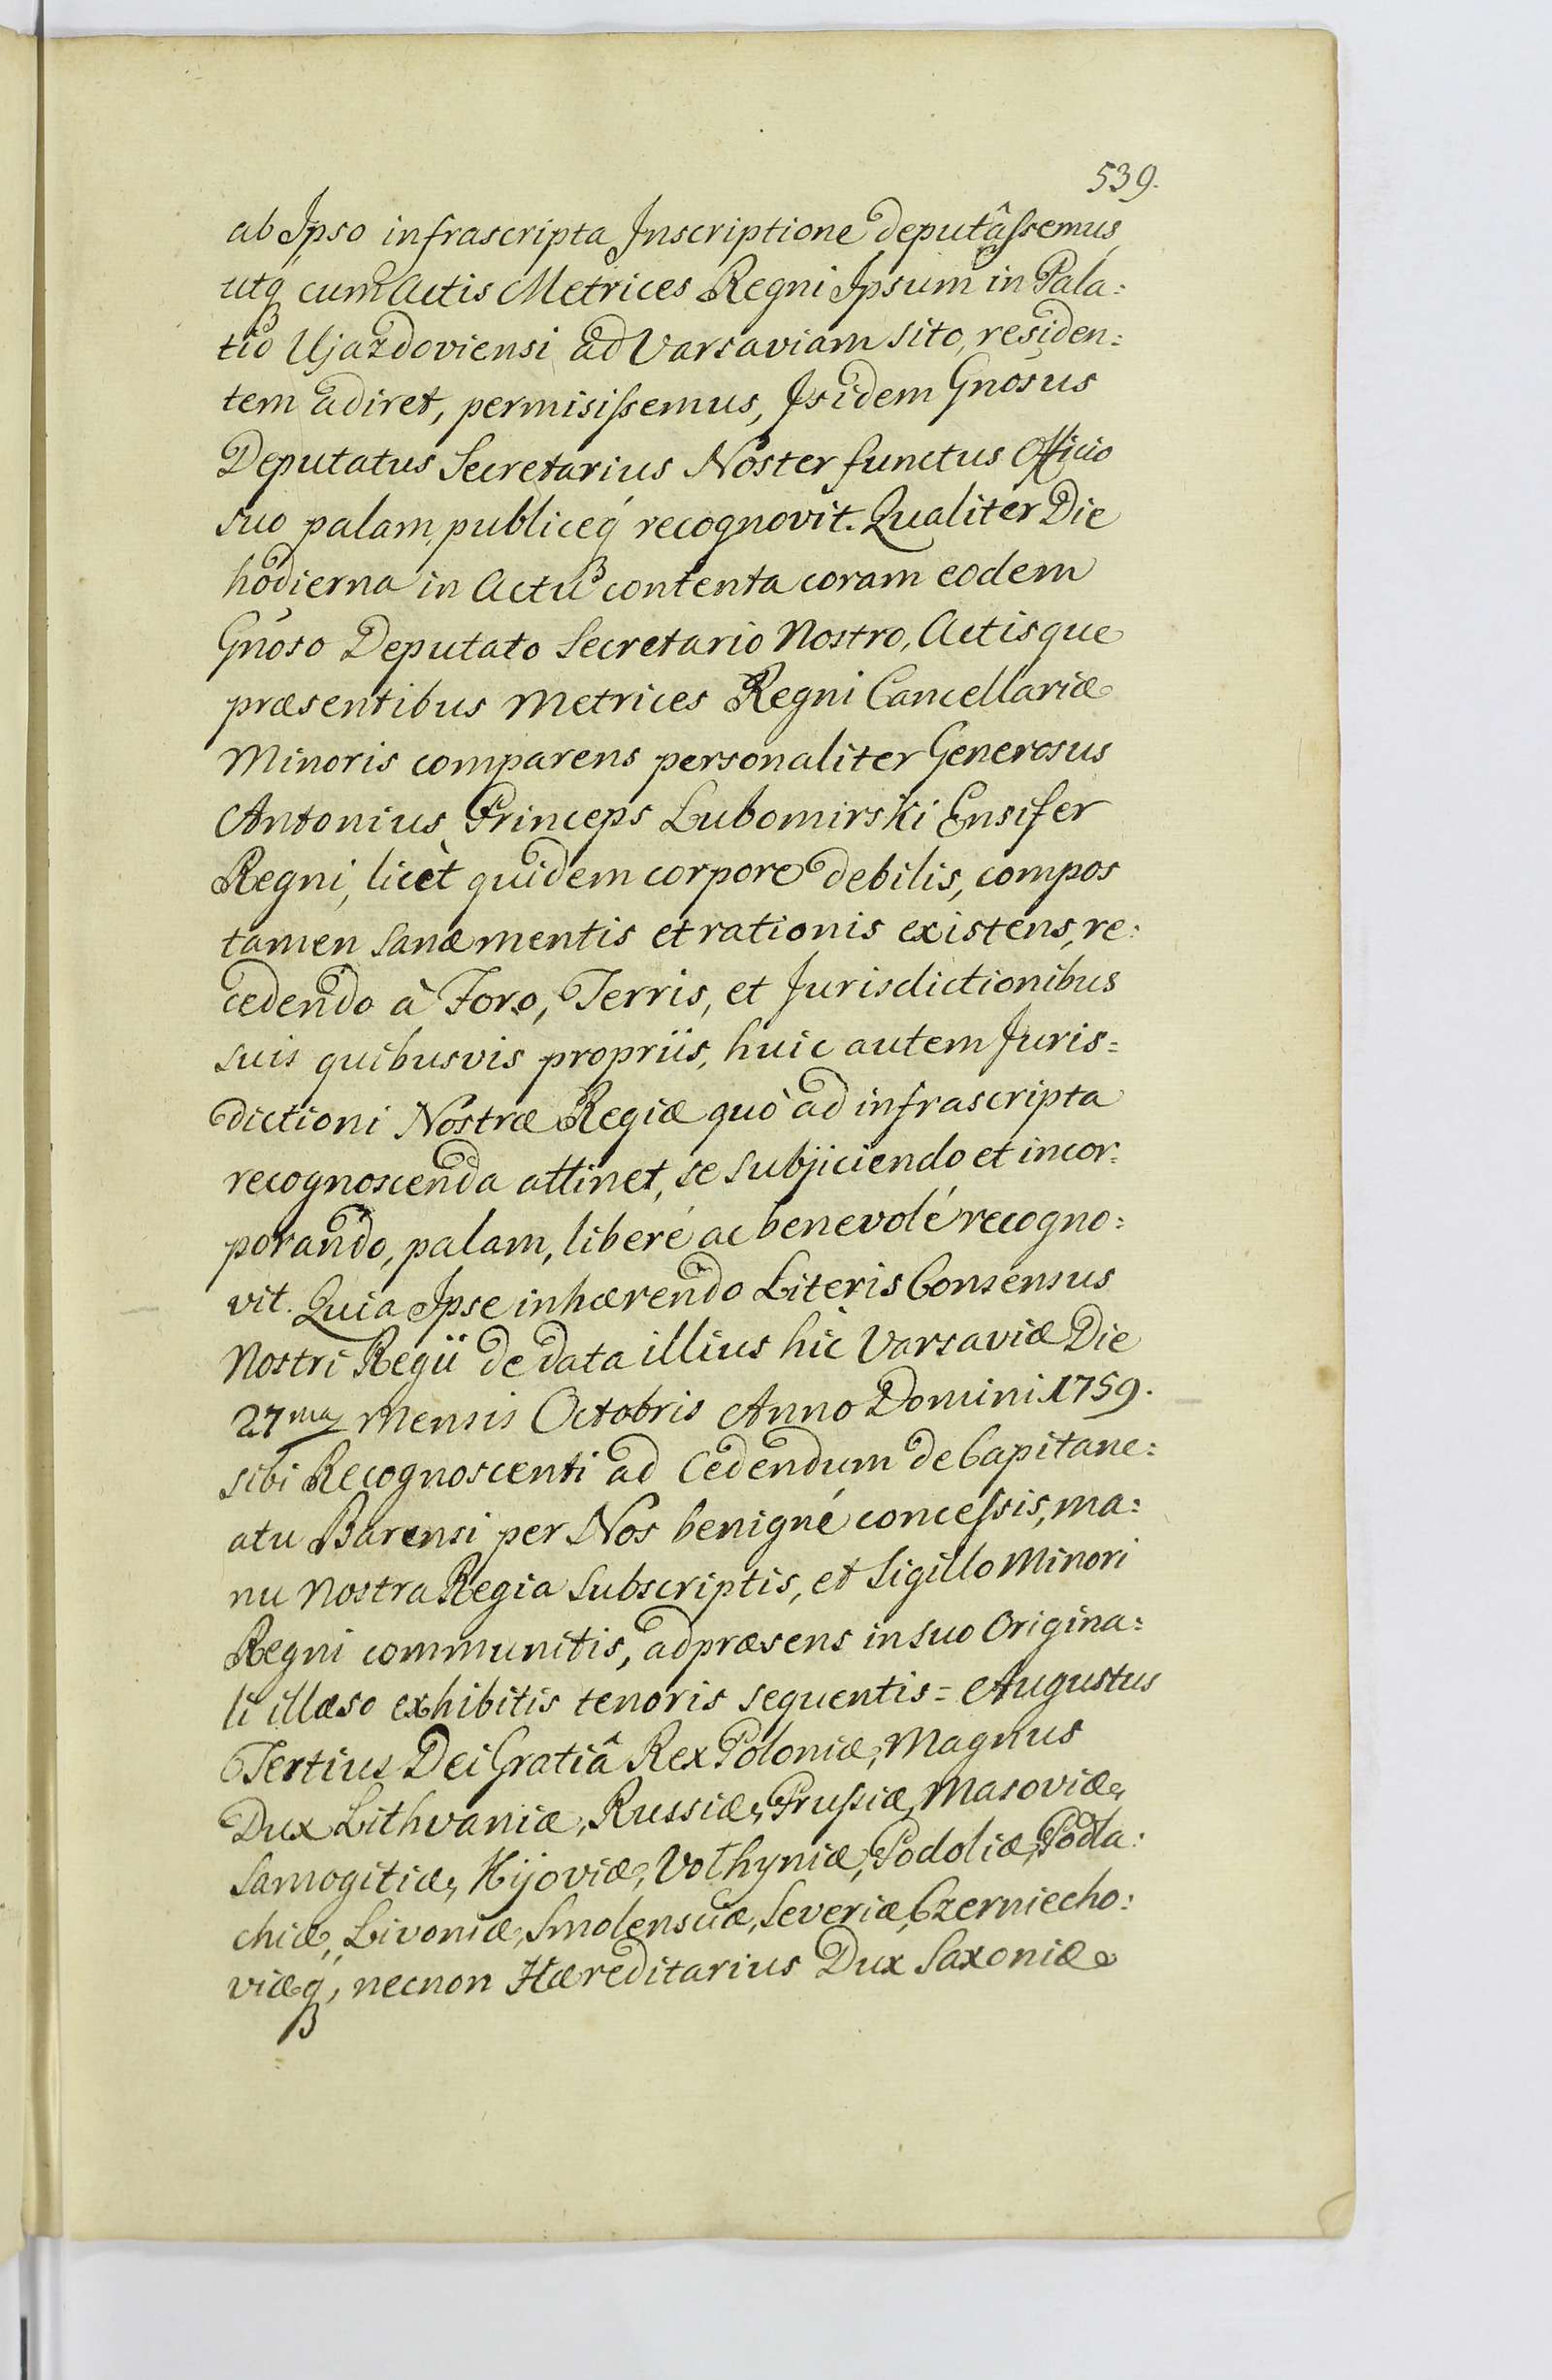 539.
ab Ipso infrascripta Inscriptione deputâſsemus,
utq́ cum Actis Metrices Regni Ipsum in Pala:
tio Ujazdoviensi ad Varsaviam sito, residen:
tem adiret, permisiſsemus, Isidem Gnosus
Deputatus Secretarius Noster functus Officio
suo palam, publiceq́ recognovit. Qualiter Die
hodierna in Actu contenta coram eodem
Gnoso Deputato Secretario Nostro, Actisque
præsentibus Metrices Regni Cancellariæ
Minoris comparens personaliter Generosus
Antonius Princeps Lubomirski Ensifer
Regni, licèt quidem corpore debilis, compos
tamen sanæ mentis et rationis existens, re:
cedendo à Foro, Terris, et Jurisdictionibus
suis quibusvis propriis, huic autem Juris=
dictioni Nostræ Regiæ quò ad infrascripta
recognoscenda attinet, se subjiciendo et incor:
porando, palam, liberé ac benevolé recogno:
vit. Quia Ipse inhærendo Literis Consensus
Nostri Regii de data illius hic Varsaviæ Die
27ma Mensis Octobris Anno Domini 1759.
sibi Recognoscenti ad Cedendum de Capitane:
atu Barensi per Nos benigné conceſsis, ma:
nu Nostra Regia subscriptis, et Sigillo Minori
Regni communitis, ad præsens in suo Origina:
li illæso exhibitis tenoris sequentis = Augustus
Tertius Dei Gratiâ Rex Poloniæ, Magnus
Dux Lithvaniæ, Russiæ, Pruſsiæ, Masoviæ,
Samogitiæ, Kijoviæ, Volhyniæ, Podoliæ, Podla:
chiæ, Livoniæ, Smolensciæ, Severiæ, Czerniecho:
viæq́, necnon Hæreditarius Dux Saxoniæ